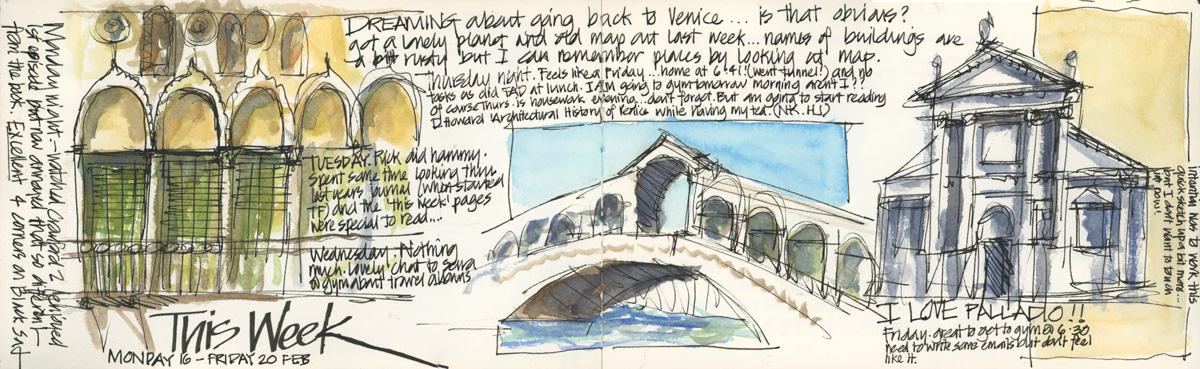 Monday night - watched Cranford 2. Enjoyed
1st episode but now annoyed that so different
from the book. Excellent 4 corners on
DREAMING about going back to Venice... is that obvious?
got a lonely planet and old map out last week... names of buildings are
a bit rusty but I can remember places by looking at map.
Thursday night. Feels like a Friday... home at 6:41! (went tunnel!) and no
tasks as did at lunch. I AM going to gym tomorrow morning arent I??
of course thurs. is housework evening... dont forget. But am going to start reading
D. Howard Architectural History of Venice while having my tea. (N.K. H.J)
TUESDAY. Rick did hammy.
Spent some time looking thru
last years journal (when started
TF) and the 'this week' pages
were special to read....
Wednesday. Nothing
much. lovely chat to
@ gym about travel
This Week
MONDAY 16 - FRIDAY 20 FEB
I LOVE PALLADIO!!
Friday. great to get to gym @ 6.30
need to write some emails but dont feel
like it.
intending to work this
quick sketch up a bit more...
but I dont want to touch
it now!